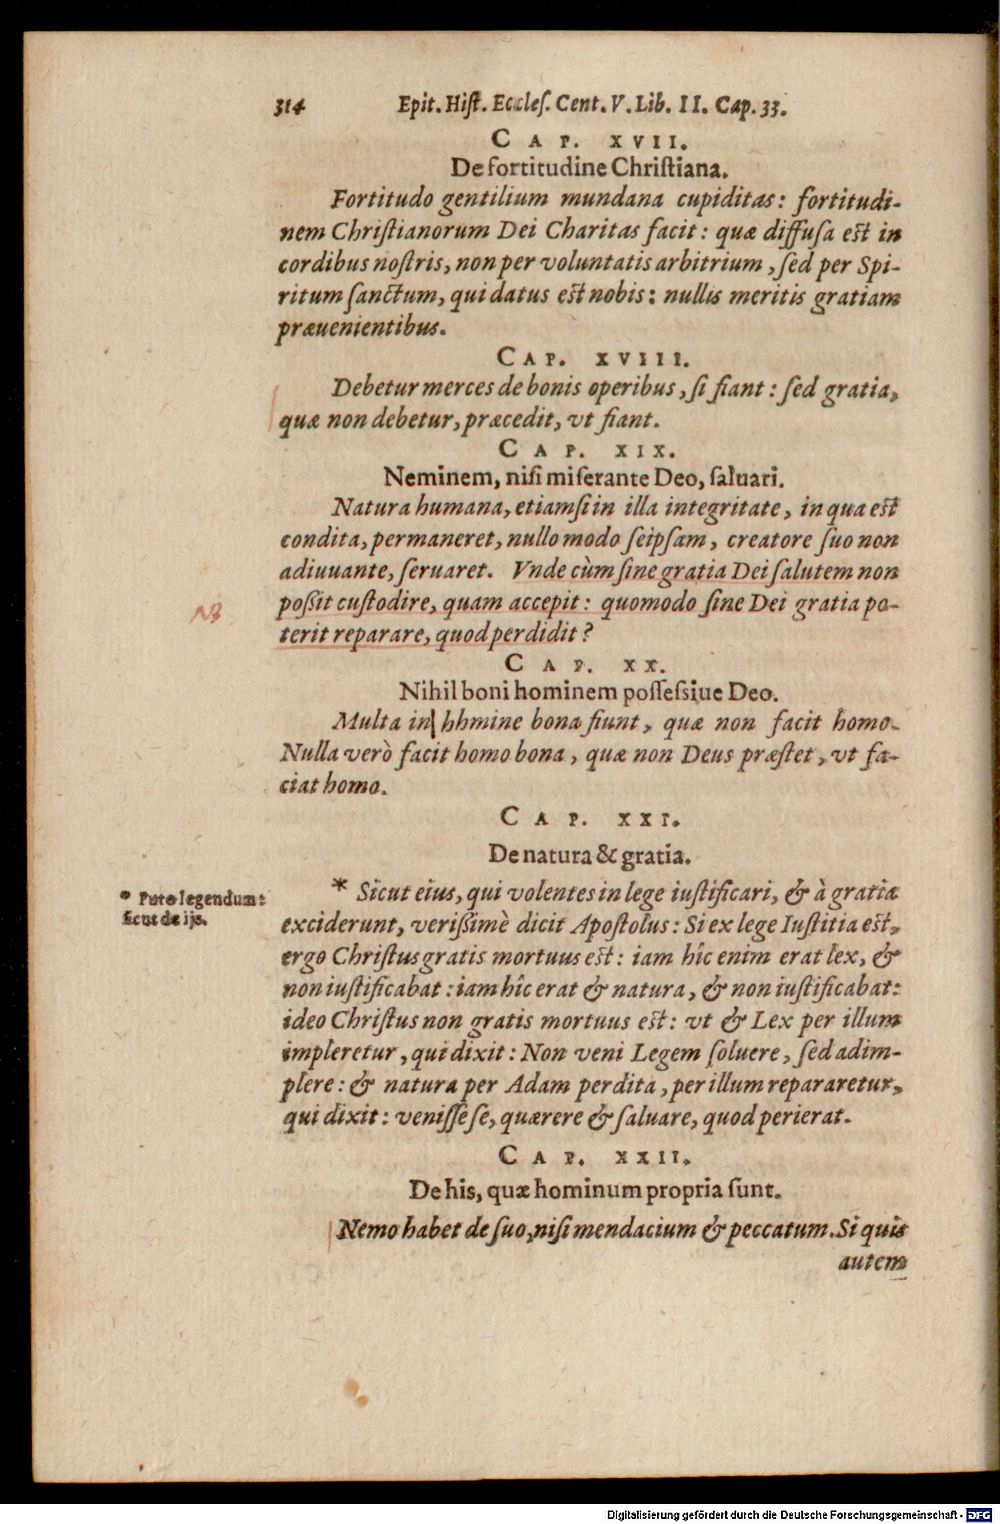 314 Epit. Hist. Eccles. Cent. V. Lib. II. Cap. 33.
CAP. XVII.
De fortitudine Christiana.
Fortitudo gentilium mundana cupiditas: fortitudi-
nem Christianorum Dei Charitas facit: quæ diffusa est in
cordibus nostris, non per voluntatis arbitrium, sed per Spi-
ritum sanctum, qui datus est nobis: nullis meritis gratiam
præuenientibus.
CAP. XVIII.
Debetur merces de bonis operibus, si fiant: sed gratia,
quæ non debetur, præcedit, vt fiant.
CAP. XIX.
Neminem, nisi miserante Deo, saluari.
Natura humana, etiamsi in illa integritate, in qua est
condita, permaneret, nullo modo seipsam, creatore suo non
adiuuante, seruaret. Vnde cùm sine gratia Dei salutem non
possit custodire, quam accepit: quomodo sine Dei gratia po-
NB
terit reparare, quod perdidit?
CAP. XX.
Nihil boni hominem possessiue Deo.
Multa in hhmine bona fiunt, quæ non facit homo.
Nulla verò facit homo bona, quæ non Deus præstet, vt fa-
ciat homo.
CAP. XXI.
De natura & gratia.
* Sicut eius, qui volentes in lege iustificari, & à gratia
* Puto legendum:
sicut de ijs.
exciderunt, verissimè dicit Apostolus: Si ex lege Iustitia est,
ergo Christus gratis mortuus est: iam hîc enim erat lex, &
non iustificabat: iam hîc erat & natura, & non iustificabat:
ideo Christus non gratis mortuus est: vt & Lex per illum
impleretur, qui dixit: Non veni Legem soluere, sed adim-
plere: & natura per Adam perdita, per illum repararetur,
qui dixit: venisse se, quærere & saluare, quod perierat.
CAP. XXII.
De his, quæ hominum propria sunt.
Nemo habet de suo, nisi mendacium & peccatum. Si quis
autem
Digitalisierung gefördert durch die Deutsche Forschungsgemeinschaft - DFG